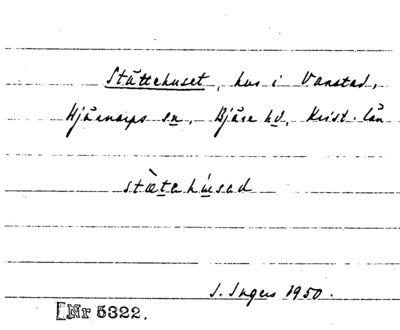 Stättehuset, hus i Vanstad,
Hjärnarps sn, Bjäre hd, Krist. län
stæ̀tehúsed
I. Ingers 1950.
[Nr 5322.